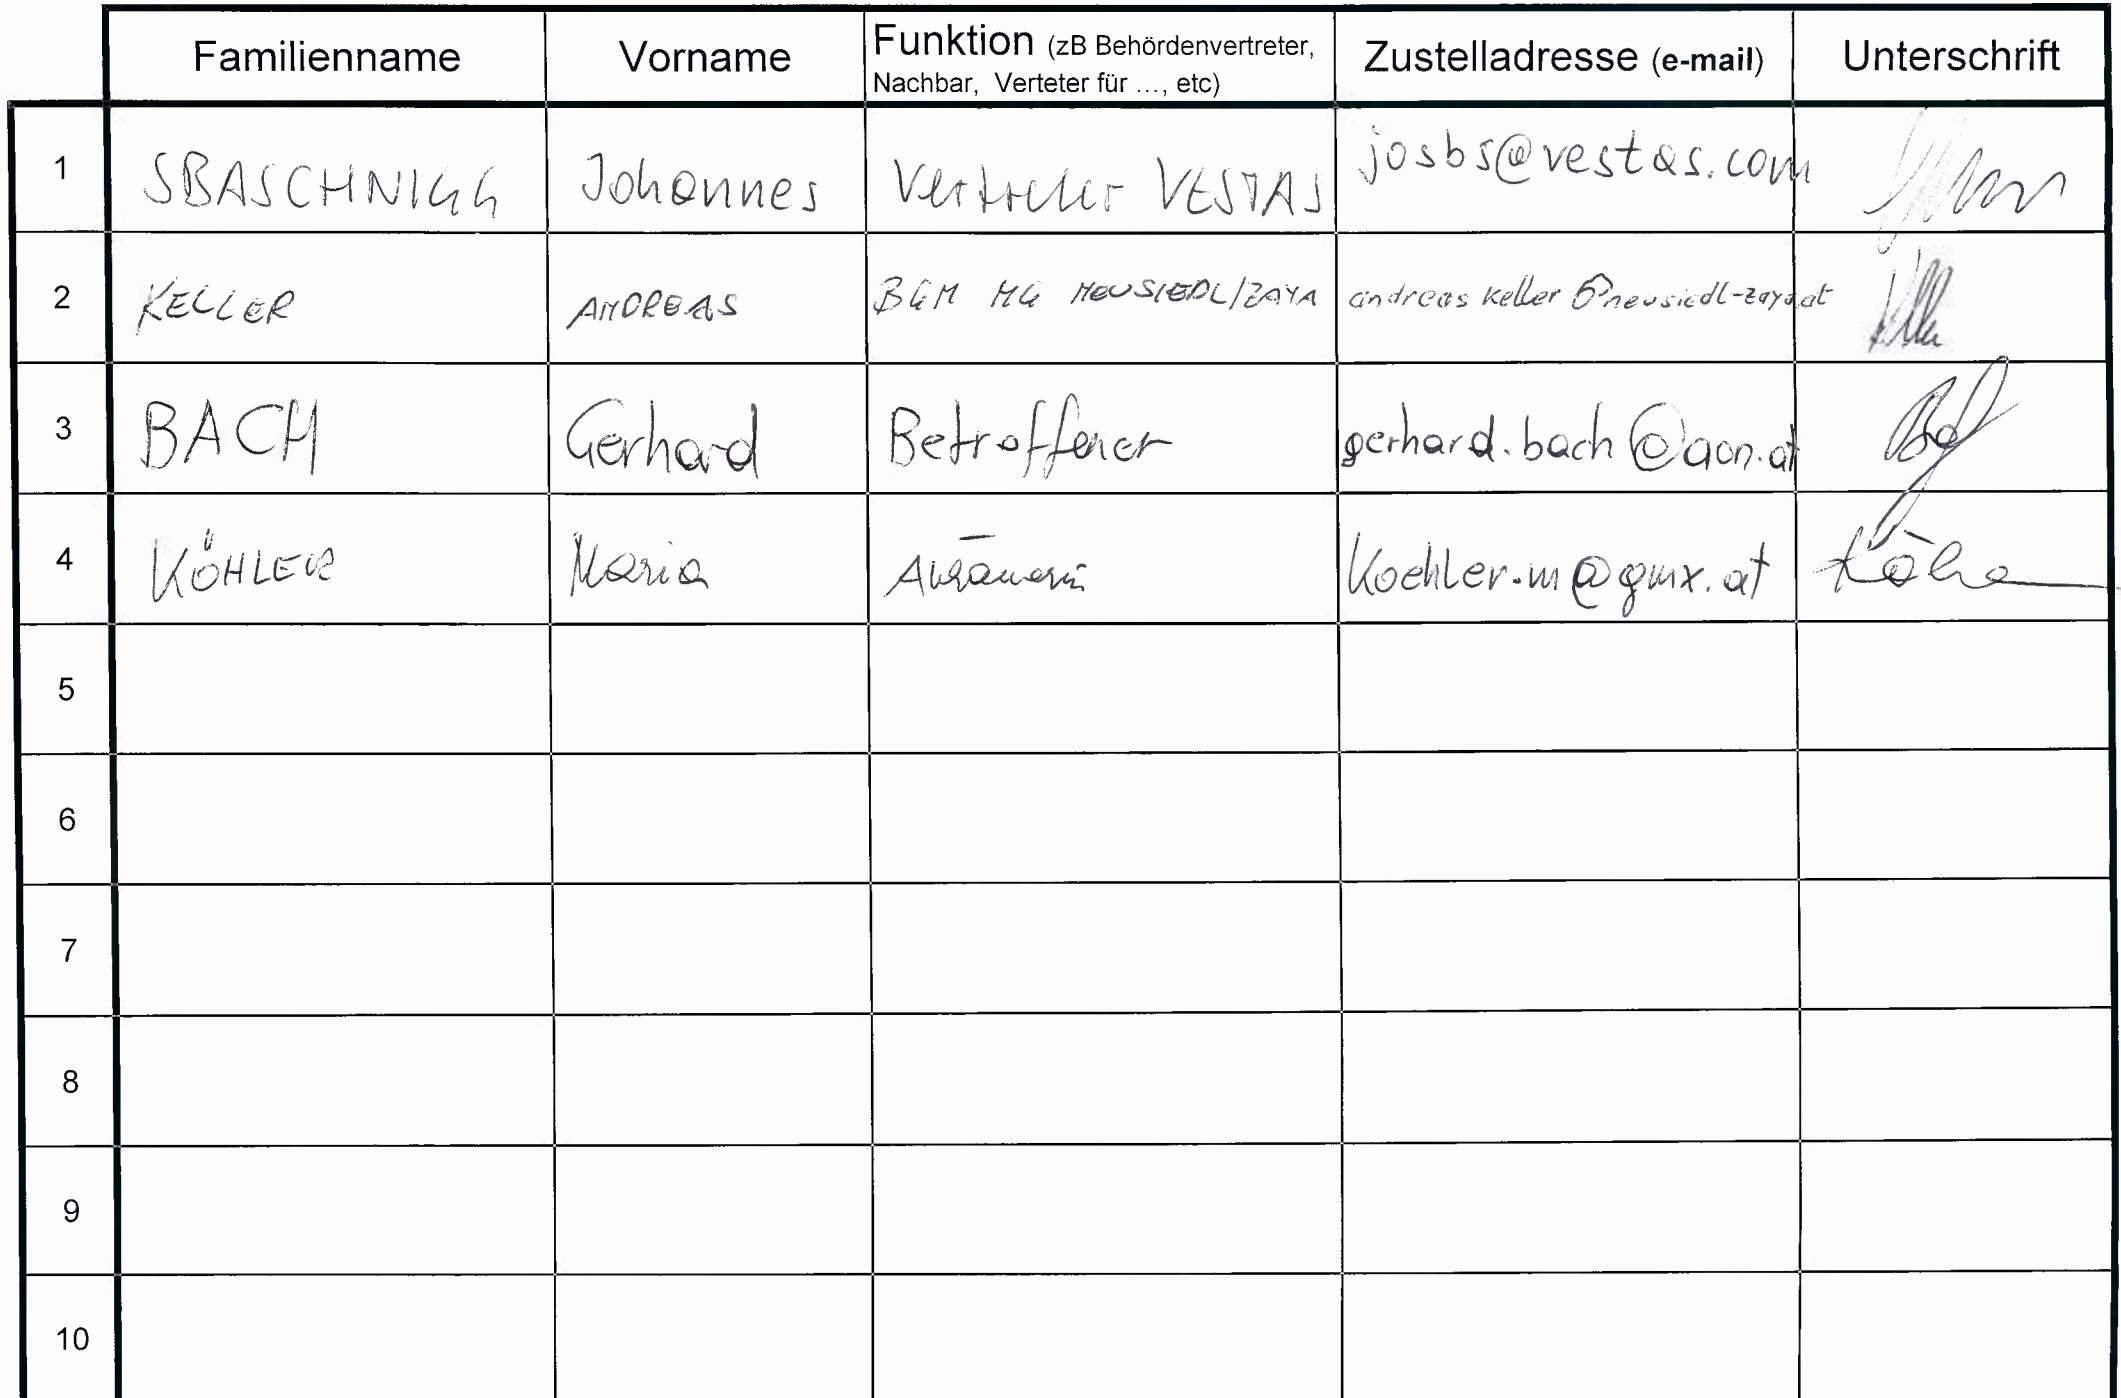 Familienname Vorname Funktion (zB Behördenvertreter, Nachbar, Verteter für ..., etc) Zustelladresse (e-mail) Unterschrift
1 SBASCHNIGG Johannes Vertreter VESTAS josbs@vestas.com
2 KELLER ANDREAS BGM MG NEUSIEDL/ZAYA andreas keller@neusiedl-zaya.at
3 BACH Gerhard Betroffener gerhard.bach@aon.at
4 KÖHLER Maria Anrainerin Koehler.m@gmx.at
5
6
7
8
9
10